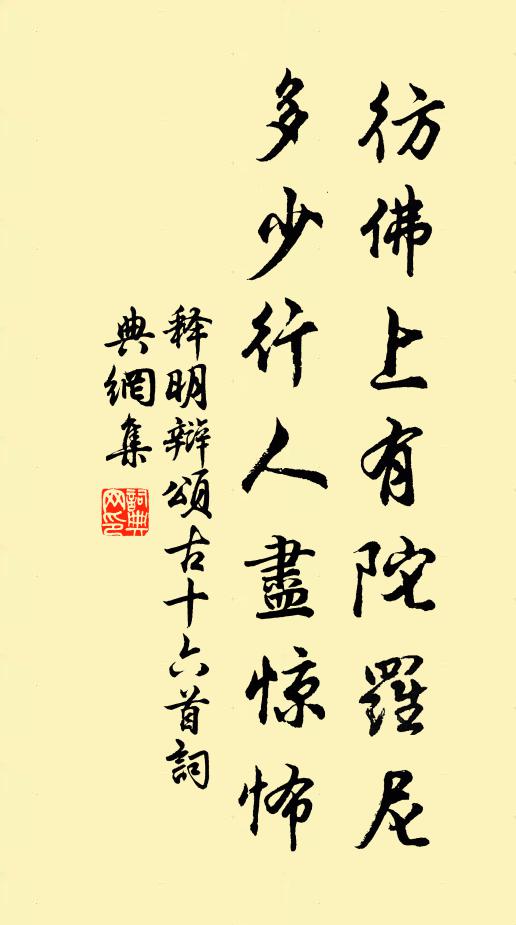 彷佛上有陀羅尼
多少行人盡惊怖
释明辯頌古十六首詞
典網集
詞典网印